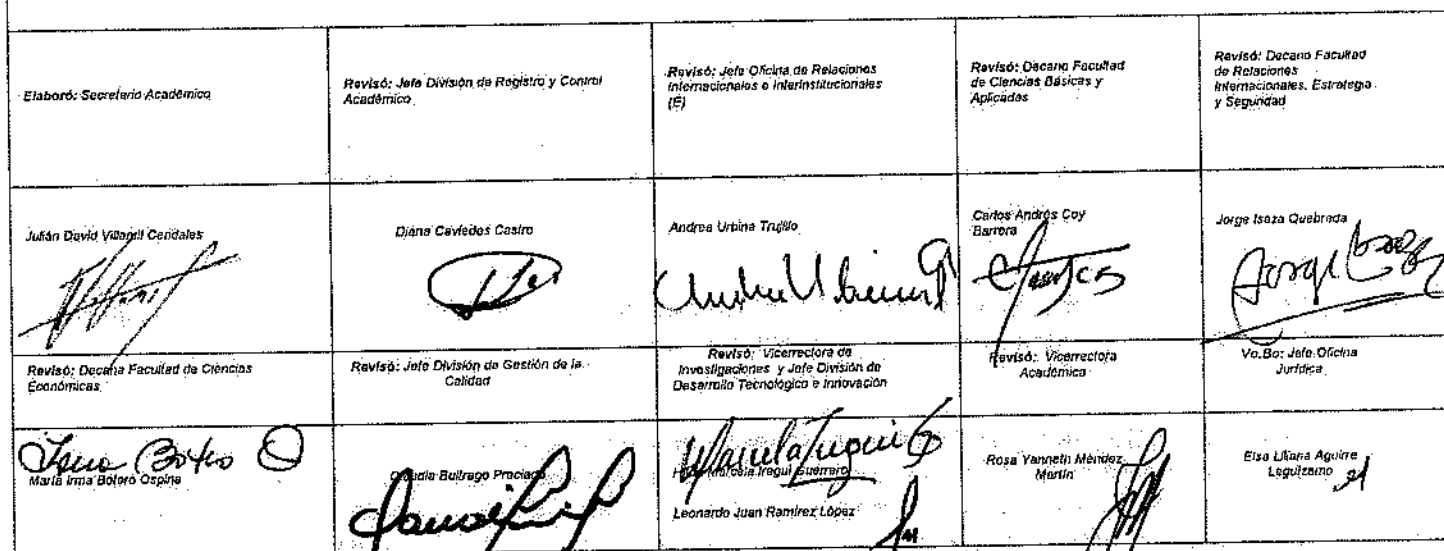 Elaboró: Secretario Académico
Revisó: Jefe División de Registro y Control
Académico
Revisó: Jefe Oficina de Relaciones
Internacionales e Interinstitucionales
(E)
Revisó: Decano Facultad
de Ciencias Básicas y
Aplicadas
Revisó: Decano Facultad
de Relaciones
Internacionales, Estrategia
y Seguridad
Julián David Villamil Cendales
Diana Caviedes Castro
Andrea Urbina Trujillo
Carlos Andrés Coy
Barrera
Jorge Isaza Quebrada
Jorge Isaza
Revisó: Decana Facultad de Ciencias
Económicas
Revisó: Jefe División de Gestión de la
Calidad
Revisó: Vicerrectora de
Investigaciones y Jefe División de
Desarrollo Tecnológico e Innovación
Revisó: Vicerrectora
Académica
Vo.Bo: Jefe Oficina
Jurídica
Irma Botero O
María Irma Botero Ospina
Claudia Buitrago Preciado
Marcela Iregui G
Marcela Iregui Guerrero
Leonardo Juan Ramírez López
Rosa Yanneth Méndez
Martín
Elsa Liliana Aguirre
Leguizamo